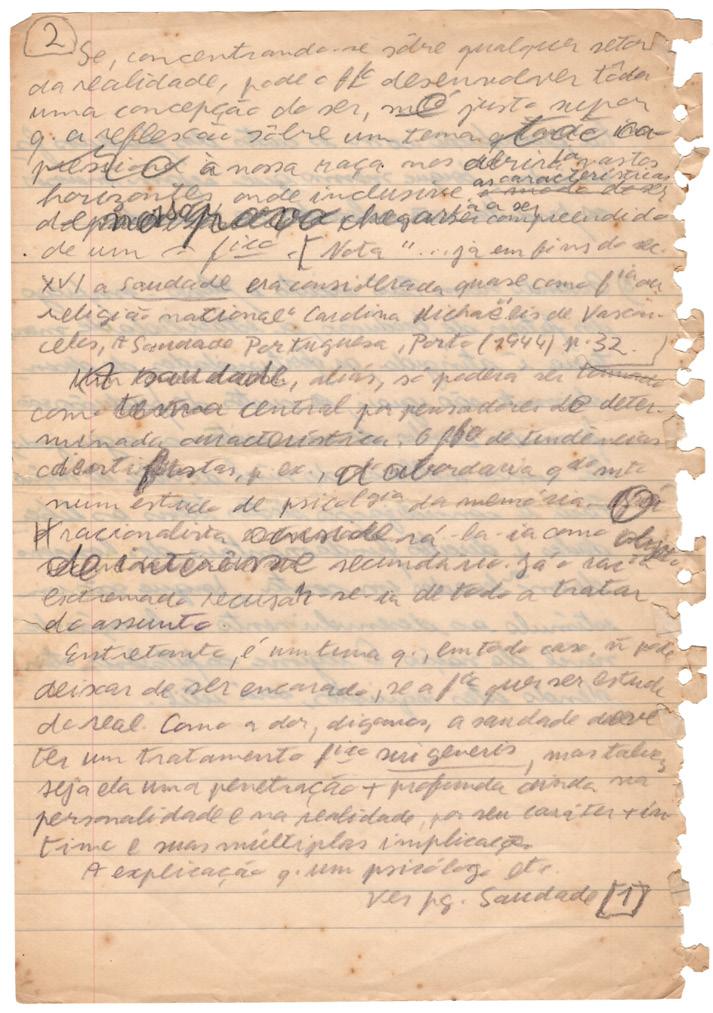 2
Se, concentrando-se sôbre qualquer setor
da realidade, pode o ffº desenvolver tôda
uma concepção do ser, é justo supor
q. a reflexão sôbre um tema
à nossa raça nos abrirá vastos
horizontes, onde inclusive as características
chegar compreendido
de um fico. [Nota "...já em fins do sec.
XVI a Saudade era considerada quase como fia ou
religião national" Carolina Michaëlis de Vascon-
celos, A Saudade Portuguesa, Porto (1944) p. 32.]
A saudade, aliás, só poderá ser tomada
como tema central por pensadores de deter-
minada característica. O ffº de tendências
cientifistas, p. ex., a abordaria qdo mto
num estudo de psicologia da memória. O
racionalista
de interêsse secundário. Já o
extremado recusar-se-ia de todo a tratar
do assunto.
Entretanto, é um tema q., em todo caso, ñ pode
deixar de ser encarado, se a fia quer ser estudo
do real. Como a dor, digamos, a saudade deve
ter um tratamento fico sui generis, mas talvez
seja ela uma penetração + profunda ainda na
personalidade e na realidade, por seu caráter + ín-
timo e suas múltiplas implicações
A explicação q. um psicólogo etc.
Ver pg. Saudade [1]